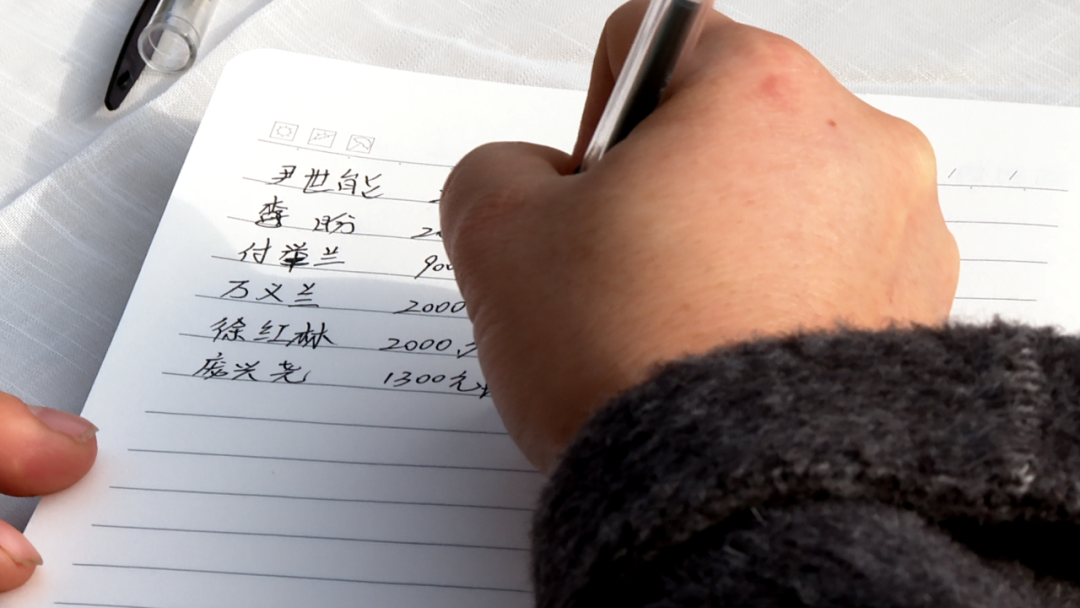 尹世能
李盼 2
付举兰 900
万义兰 2000
徐红林 2000元
庞兴尧 1300元